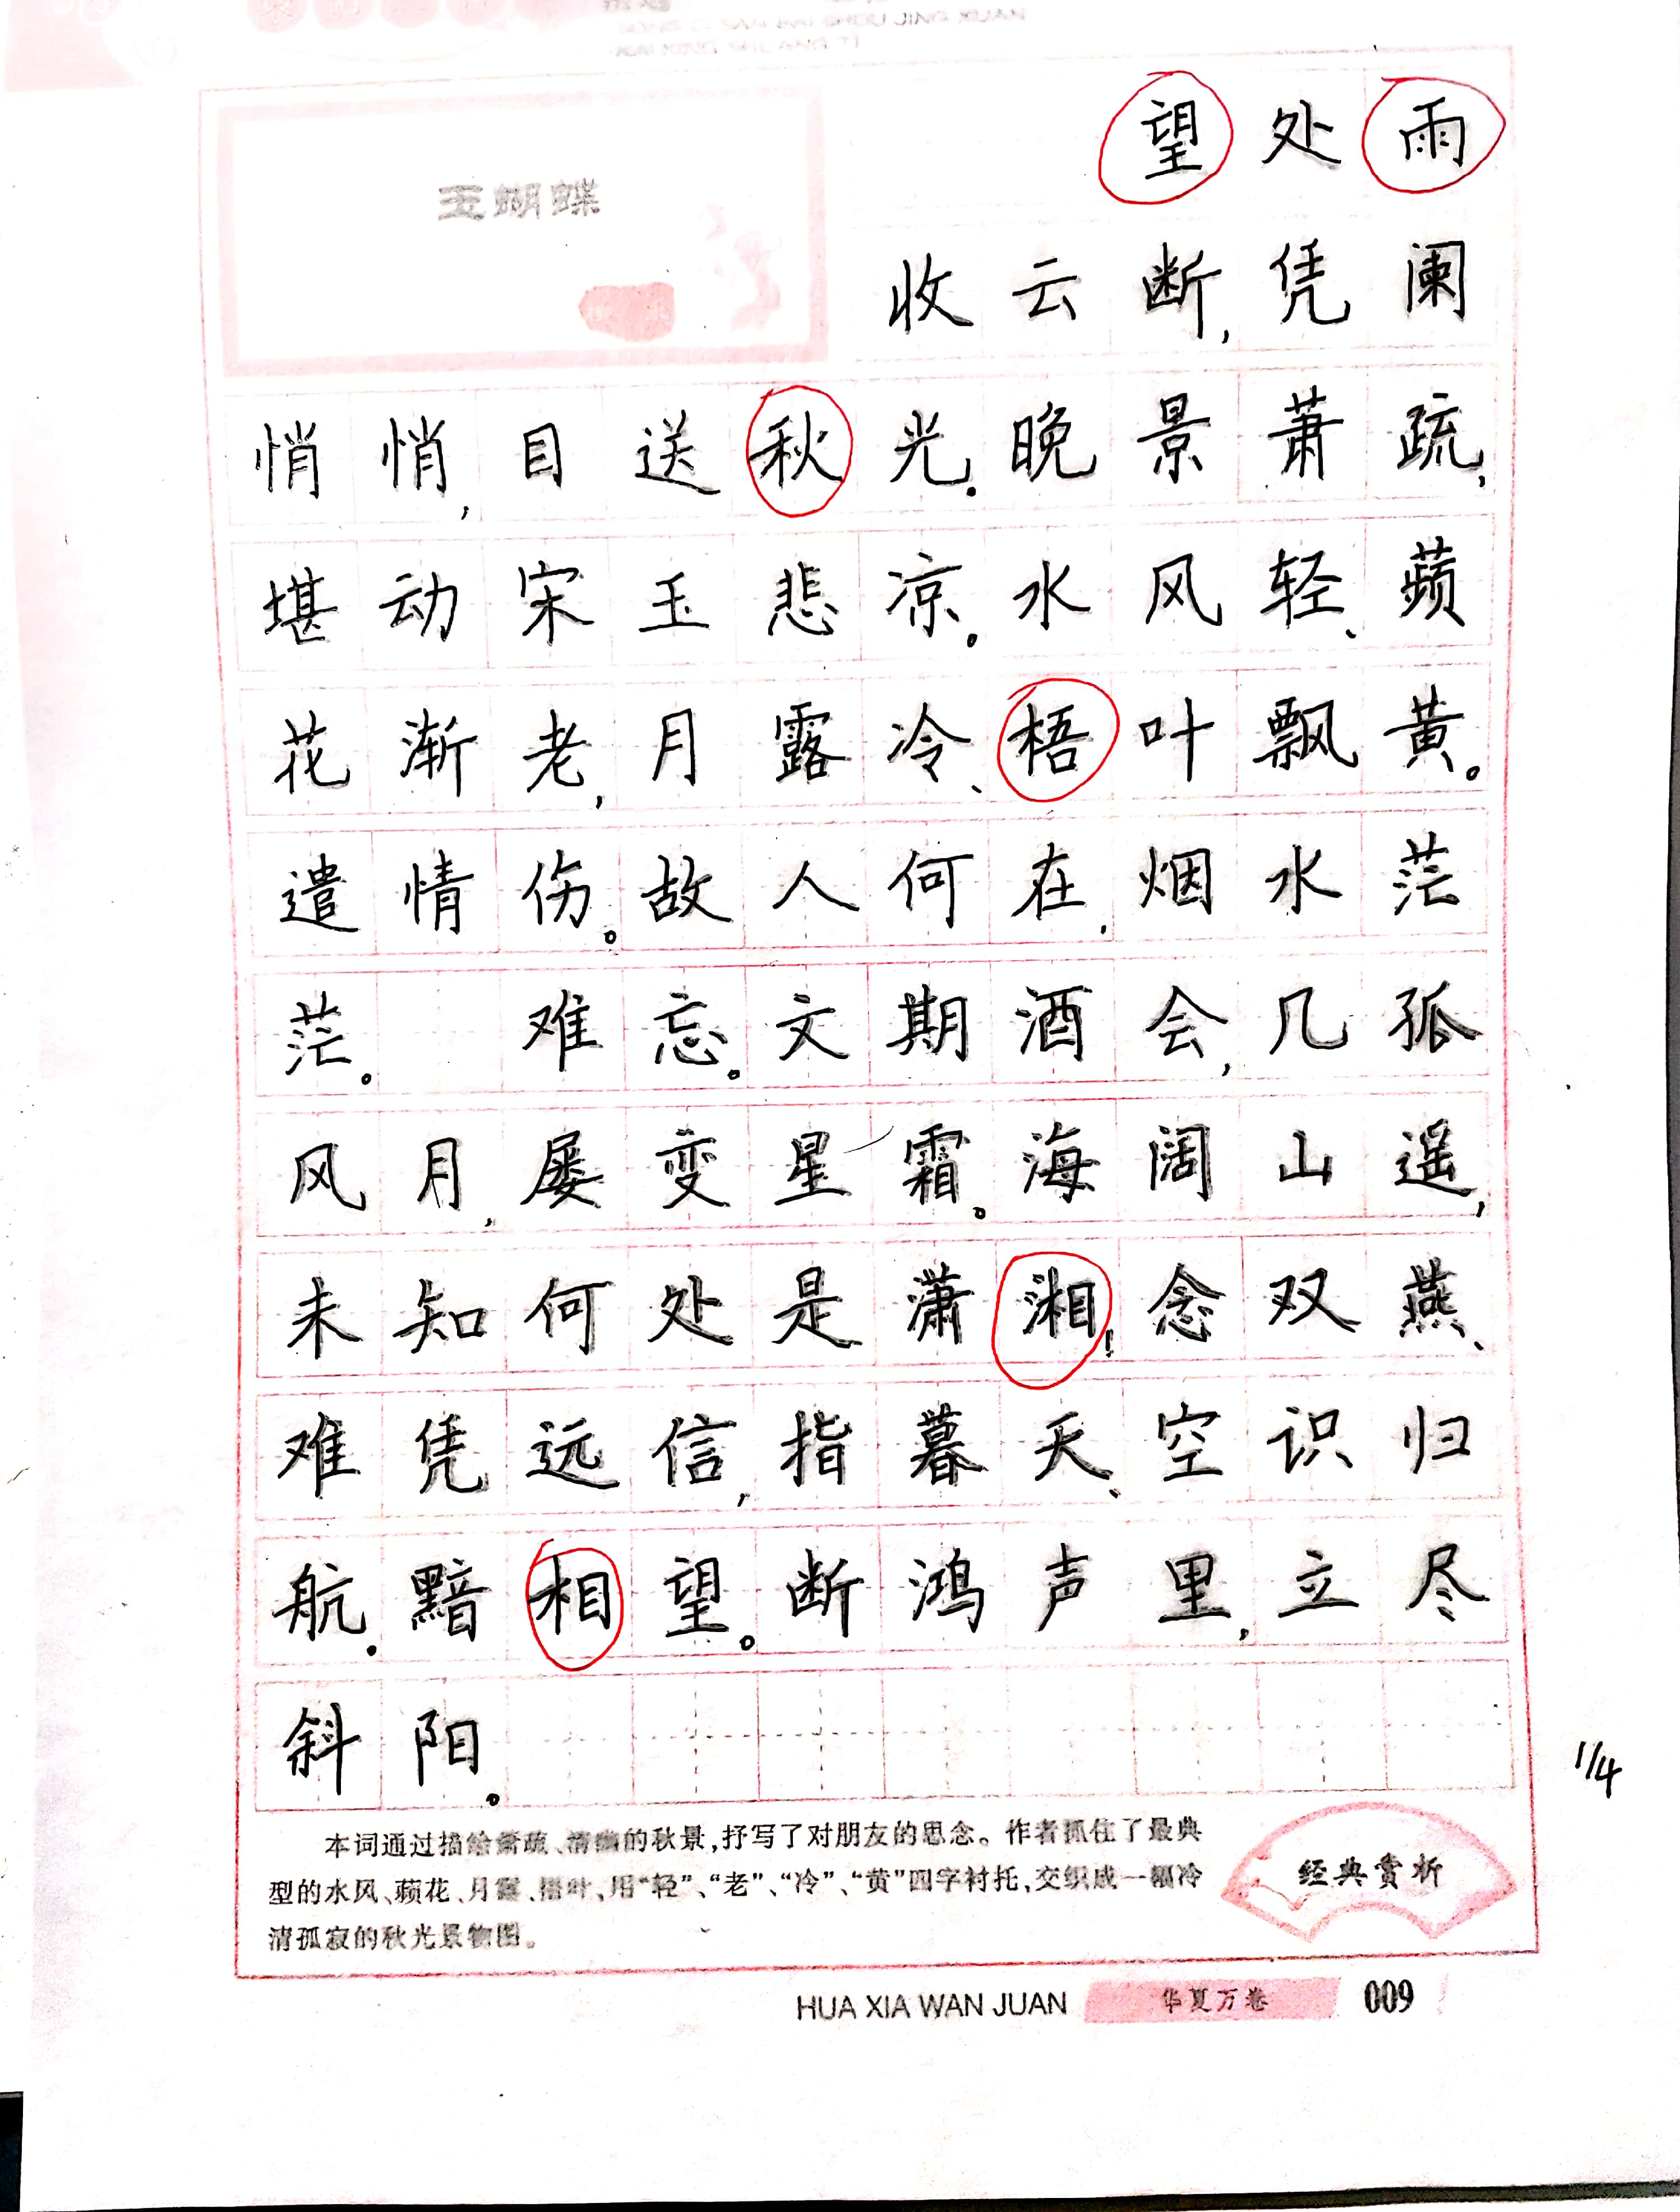 玉蝴蝶
望处雨
收云断,凭阑
悄悄,目送秋光。晚景萧疏,
堪动宋玉悲凉。水风轻、蘋
花渐老,月露冷、梧叶飘黄。
遣情伤。故人何在,烟水茫
茫。 难忘。文期酒会,几孤
风月,屡变星霜。海阔山遥,
未知何处是潇湘!念双燕、
难凭远信,指暮天、空识归
航。黯相望。断鸿声里,立尽
斜阳。
1/4
本词通过描绘萧疏、清幽的秋景,抒写了对朋友的思念。作者抓住了最典
型的水风、蘋花、月露、梧叶,用“轻”、“老”、“冷”、“黄”四字衬托,交织成一幅冷
清孤寂的秋光景物图。
经典赏析
HUA XIA WAN JUAN 华夏万卷 009